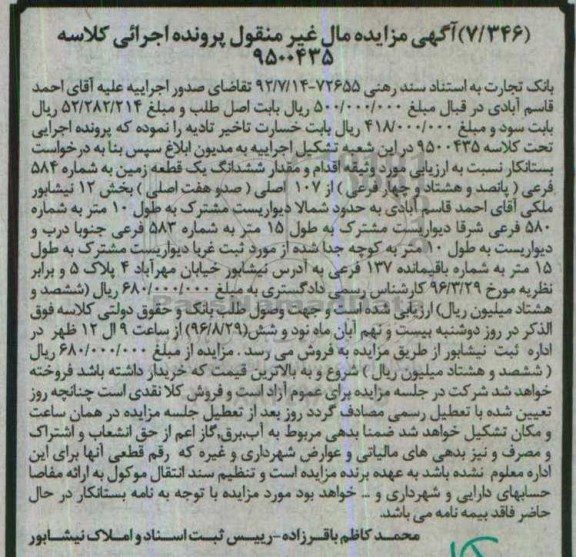 (۷/۳۴۶)آگهی مزایده مال غیر منقول پرونده اجرائی کلاسه
۹۵۰۰۴۳۵
بانک تجارت به استناد سند رهنی ۷۲۶۵۵-۹۲/۷/۱۴ تقاضای صدور اجراییه علیه آقای احمد
قاسم آبادی در قبال مبلغ ۵۰۰/۰۰۰/۰۰۰ ریال بابت اصل طلب و مبلغ ۵۲/۲۸۲/۲۱۴ ریال
بابت سود و مبلغ ۴۱۸/۰۰۰/۰۰۰ ریال بابت خسارت تاخیر تادیه را نموده که پرونده اجرایی
تحت کلاسه ۹۵۰۰۴۳۵ در این شعبه تشکیل اجراییه به مدیون ابلاغ سپس بنا به درخواست
بستانکار نسبت به ارزیابی مورد وثیقه اقدام و مقدار ششدانگ یک قطعه زمین به شماره ۵۸۴
فرعی ( پانصد و هشتاد و چهار فرعی ) از ۱۰۷ اصلی ( صدو هفت اصلی ) بخش ۱۲ نیشابور
ملکی آقای احمد قاسم آبادی به حدود شمالا دیواریست مشترک به طول ۱۰ متر به شماره
۵۸۰ فرعی شرقا دیواریست مشترک به طول ۱۵ متر به شماره ۵۸۳ فرعی جنوبا درب و
دیواریست به طول ۱۰ متر به کوچه جدا شده از مورد ثبت غربا دیواریست مشترک به طول
۱۵ متر به شماره باقیمانده ۱۳۷ فرعی به آدرس نیشابور خیابان مهرآباد ۴ پلاک ۵ و برابر
نظریه مورخ ۹۶/۳/۲۹ کارشناس رسمی دادگستری به مبلغ ۶۸۰/۰۰۰/۰۰۰ ریال (ششصد و
هشتاد میلیون ریال) ارزیابی شده است و جهت وصول طلب بانک و حقوق دولتی کلاسه فوق
الذکر در روز دوشنبه بیست و نهم آبان ماه نود و شش(۹۶/۸/۲۹) از ساعت ۹ ال ۱۲ ظهر در
اداره ثبت نیشابور از طریق مزایده به فروش می رسد . مزایده از مبلغ ۶۸۰/۰۰۰/۰۰۰ ریال
( ششصد و هشتاد میلیون ریال ) شروع و به بالاترین قیمت که خریدار داشته باشد فروخته
خواهد شد شرکت در جلسه مزایده برای عموم آزاد است و فروش کلا نقدی است چنانچه روز
تعیین شده با تعطیل رسمی مصادف گردد روز بعد از تعطیل جلسه مزایده در همان ساعت
و مکان تشکیل خواهد شد ضمنا بدهی مربوط به آب،برق،گاز اعم از حق انشعاب و اشتراک
و مصرف و نیز بدهی های مالیاتی و عوارض شهرداری و غیره که رقم قطعی آنها برای این
اداره معلوم نشده باشد به عهده برنده مزایده است و تنظیم سند انتقال موکول به ارائه مفاصا
حسابهای دارایی و شهرداری و ... خواهد بود مورد مزایده با توجه به نامه بستانکار در حال
حاضر فاقد بیمه نامه می باشد.
محمد کاظم باقرزاده -رییس ثبت اسناد و املاک نیشابور